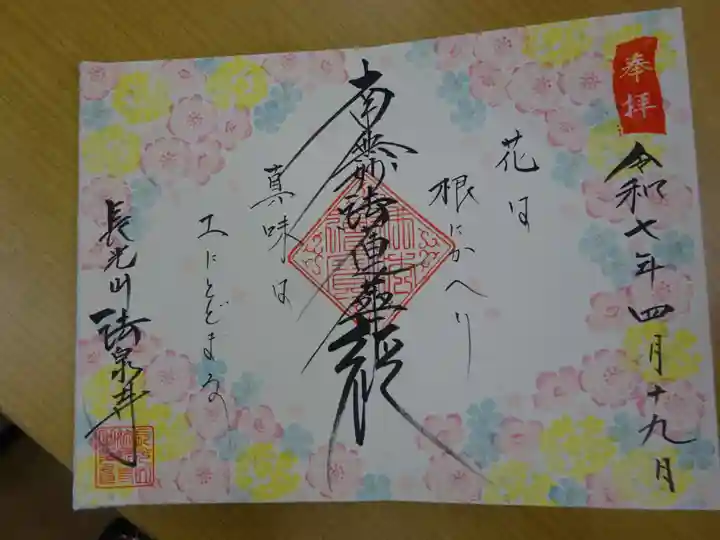 奉拝
令和七年四月十九日
花は
根にかへり
南無妙法蓮華経
真味は
土にとどまる
長光山 法泉寺